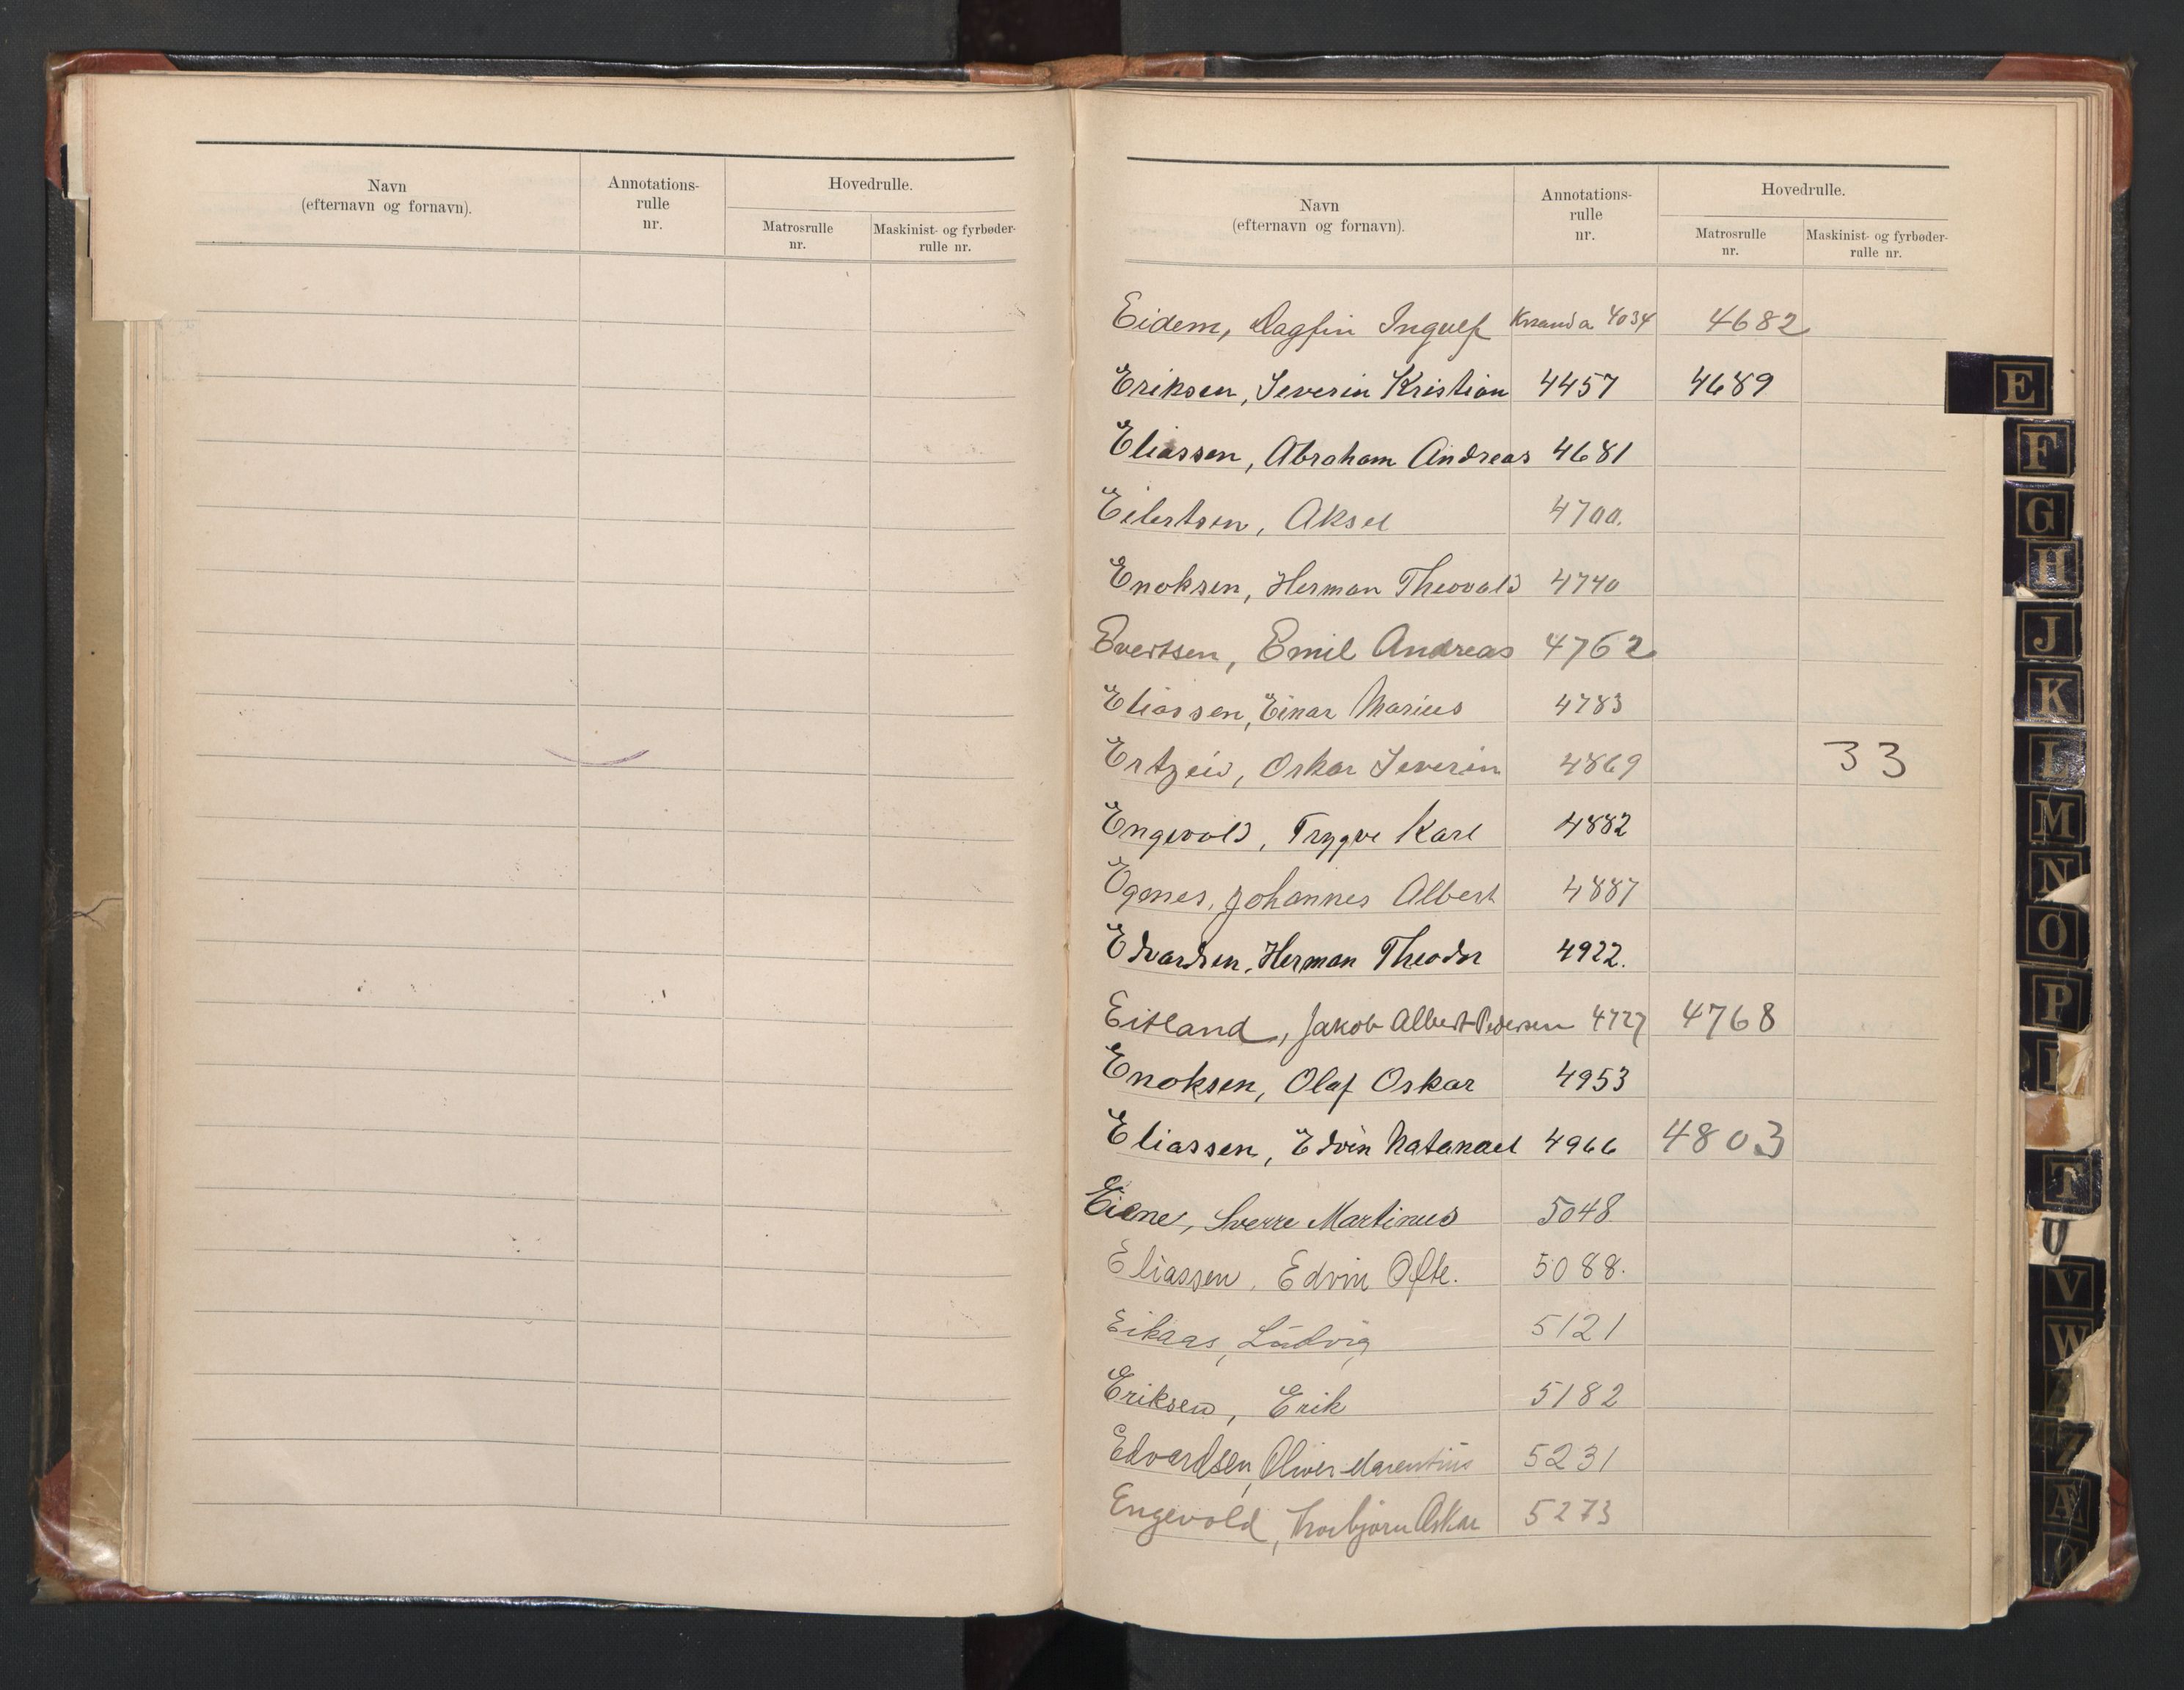 Navn
(efternavn og fornavn).
Annotations-
rulle
nr.
Hovedrulle.
Matrosrulle
nr.
Maskinist- og fyrbøder-
rulle nr.
Navn
(efternavn og fornavn).
Annotations-
rulle
nr.
Hovedrulle.
Matrosrulle
nr.
Maskinist- og fyrbøder-
rulle nr.
Eidem, Dagfin Ingulf 4034 4682
Eriksen, Severin Kristian 4457 4689
Eliassen, Abraham Andreas 4681
Eilertsen, Aksel 4700.
Enoksen, Herman Theovald 4740
Evertsen, Emil Andreas 4762
Eliassen, Einar Marius 4783
Ertzeid, Oskar Severin 4869 33
Engevold, Trygve Karl 4882
Egenes, Johannes Albert 4887
Edvardsen, Herman Theodor 4922.
Eitland, Jakob Albert Pedersen 4727 4768
Enoksen, Olaf Oskar 4953
Eliassen, Edvin Natanael 4966 4803
Eiene, Sverre Martinus 5048
Eliassen, Edvin Ofte. 5088.
Eikaas, Ludvig 5121
Eriksen, Erik 5182
Edvardsen, Oliver Marentius 5231
Engevold, Torbjørn Oskar 5273
E
F
G
H
J
K
L
M
N
O
P
T
U
V
W
Æ
Ø